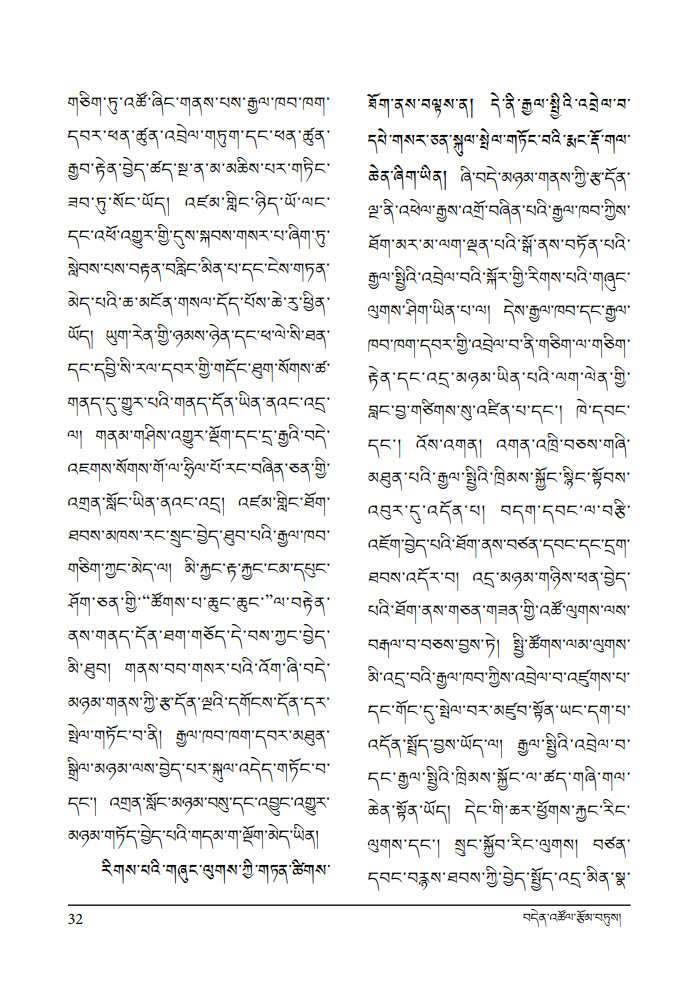 གཅིག་ཏུ་འཚོ་ཞིང་གནས་པས་རྒྱལ་ཁབ་ཁག་
དབར་ཕན་ཚུན་འབྲེལ་གཏུག་དང་ཕན་ཚུན་
རྒྱབ་རྟེན་བྱེད་ཚད་སྔ་ན་མ་མཆིས་པར་གཏིང་
ཟབ་ཏུ་སོང་ཡོད། འཛམ་གླིང་ཉིད་ཡོ་ལང་
དང་འཕོ་འགྱུར་གྱི་དུས་སྐབས་གསར་པ་ཞིག་ཏུ་
སླེབས་པས་བརྟན་བརླིང་མིན་པ་དང་ངེས་གཏན་
མེད་པའི་ཆ་མངོན་གསལ་དོད་པོས་ཆེ་རུ་ཕྱིན་
ཡོད། ཡུག་རེན་གྱི་ཉམས་ཉེན་དང་ཕ་ལེ་སི་ཐན་
དང་དབྱི་སི་རལ་དབར་གྱི་གདོང་ཐུག་སོགས་ཚ་
གནད་དུ་གྱུར་པའི་གནད་དོན་ཡིན་ནའང་འདྲ་
ལ། གནམ་གཤིས་འགྱུར་ལྡོག་དང་དྲ་རྒྱའི་བདེ་
འཇགས་སོགས་གོ་ལ་ཧྲིལ་པོ་རང་བཞིན་ཅན་གྱི་
འགྲན་སློང་ཡིན་ནའང་འདྲ། འཛམ་གླིང་ཐོག་
ཐབས་མཁས་རང་སྲུང་བྱེད་ཐུབ་པའི་རྒྱལ་ཁབ་
གཅིག་ཀྱང་མེད་ལ། མི་རྐྱང་རྟ་རྐྱང་ངམ་དཔུང་
ཤོག་ཅན་གྱི་“ཚོགས་པ་ཆུང་ཆུང་”ལ་བརྟེན་
ནས་གནད་དོན་ཐག་གཅོད་དེ་བས་ཀྱང་བྱེད་
མི་ཐུབ། གནས་བབ་གསར་པའི་འོག་ཞི་བདེ་
མཉམ་གནས་ཀྱི་རྩ་དོན་ལྔའི་དགོངས་དོན་དར་
སྤེལ་གཏོང་བ་ནི། རྒྱལ་ཁབ་ཁག་དབར་མཐུན་
སྒྲིལ་མཉམ་ལས་བྱེད་པར་སྐུལ་འདེད་གཏོང་བ་
དང་། འགྲན་སློང་མཉམ་བསུ་དང་འབྱུང་འགྱུར་
མཉམ་གཏོད་བྱེད་པའི་གདམ་ག་ལྡོག་མེད་ཡིན།
རིགས་པའི་གཞུང་ལུགས་ཀྱི་གཏན་ཚིགས་
ཐོག་ནས་བལྟས་ན། དེ་ནི་རྒྱལ་སྤྱིའི་འབྲེལ་བ་
དཔེ་གསར་ཅན་སྐུལ་སྤེལ་གཏོང་བའི་རྨང་རྡོ་གལ་
ཆེན་ཞིག་ཡིན། ཞི་བདེ་མཉམ་གནས་ཀྱི་རྩ་དོན་
ལྔ་ནི་འཕེལ་རྒྱས་འགྲོ་བཞིན་པའི་རྒྱལ་ཁབ་ཀྱིས་
ཐོག་མར་མ་ལག་ལྡན་པའི་སྒོ་ནས་བཏོན་པའི་
རྒྱལ་སྤྱིའི་འབྲེལ་བའི་སྐོར་གྱི་རིགས་པའི་གཞུང་
ལུགས་ཤིག་ཡིན་པ་ལ། དེས་རྒྱལ་ཁབ་དང་རྒྱལ་
ཁབ་ཁག་དབར་གྱི་འབྲེལ་བ་ནི་གཅིག་ལ་གཅིག་
རྟེན་དང་འདྲ་མཉམ་ཡིན་པའི་ལག་ལེན་གྱི་
བླང་བྱ་གཙིགས་སུ་འཛིན་པ་དང་། ཁེ་དབང་
དང་། འོས་འགན། འགན་འཁྲི་བཅས་གཞི་
མཐུན་པའི་རྒྱལ་སྤྱིའི་ཁྲིམས་སྐྱོང་སྙིང་སྟོབས་
འབུར་དུ་འདོན་པ། བདག་དབང་ལ་བརྩི་
འཇོག་བྱེད་པའི་ཐོག་ནས་བཙན་དབང་དང་དྲག་
ཐབས་འདོར་བ། འདྲ་མཉམ་གཉིས་ཕན་བྱེད་
པའི་ཐོག་ནས་གཅན་གཟན་གྱི་འཚོ་ལུགས་ལས་
བརྒལ་བ་བཅས་བྱས་ཏེ། སྤྱི་ཚོགས་ལམ་ལུགས་
མི་འདྲ་བའི་རྒྱལ་ཁབ་ཀྱིས་འབྲེལ་བ་འཛུགས་པ་
དང་གོང་དུ་སྤེལ་བར་མཛུབ་སྟོན་ཡང་དག་པ་
འདོན་སྤྲོད་བྱས་ཡོད་ལ། རྒྱལ་སྤྱིའི་འབྲེལ་བ་
དང་རྒྱལ་སྤྱིའི་ཁྲིམས་སྐྱོང་ལ་ཚད་གཞི་གལ་
ཆེན་སྟོན་ཡོད། དེང་གི་ཆར་ཕྱོགས་རྐྱང་རིང་
ལུགས་དང་། སྲུང་སྐྱོབ་རིང་ལུགས། བཙན་
དབང་བརྙས་ཐབས་ཀྱི་བྱེད་སྤྱོད་འདྲ་མིན་སྣ་
32
བདེན་འཚོལ་རྩོམ་བཏུས།